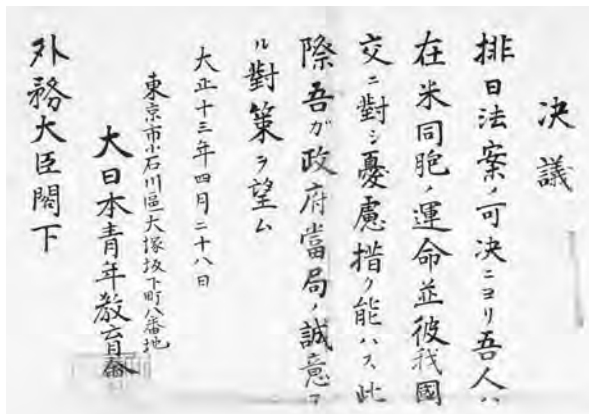 決議
排日法案ノ可決ニヨリ吾人ハ
在米同胞ノ運命並彼我國
交ニ對シ憂慮措ク能ハス此
際吾ガ政府當局ノ誠意ア
ル對策ヲ望ム
大正十三年四月二十八日
東京市小石川區大塚坂下町八番地
大日本青年教育會
外務大臣閣下